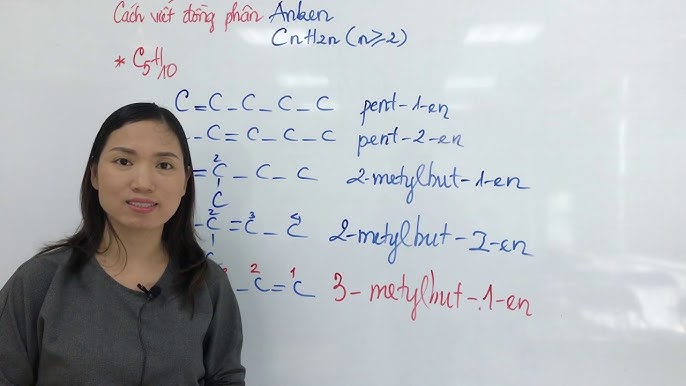 Cách viết đồng phân Anken
CnH2n (n≥2)
* C5H10
C=C-C-C-C pent-1-en
-C=C-C-C pent-2-en
2
=C-C-C 2-metylbut-1-en
C
2 3 4
-C=C-C 2-metylbut-2-en
2 1
-C=C 3-metylbut-1-en